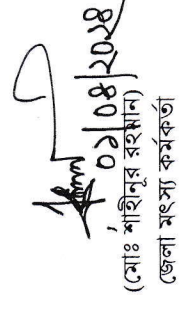 ০১/০৪/২০১৪
(মোঃ শাহীনূর রহমান)
জেলা মৎস্য কর্মকর্তা